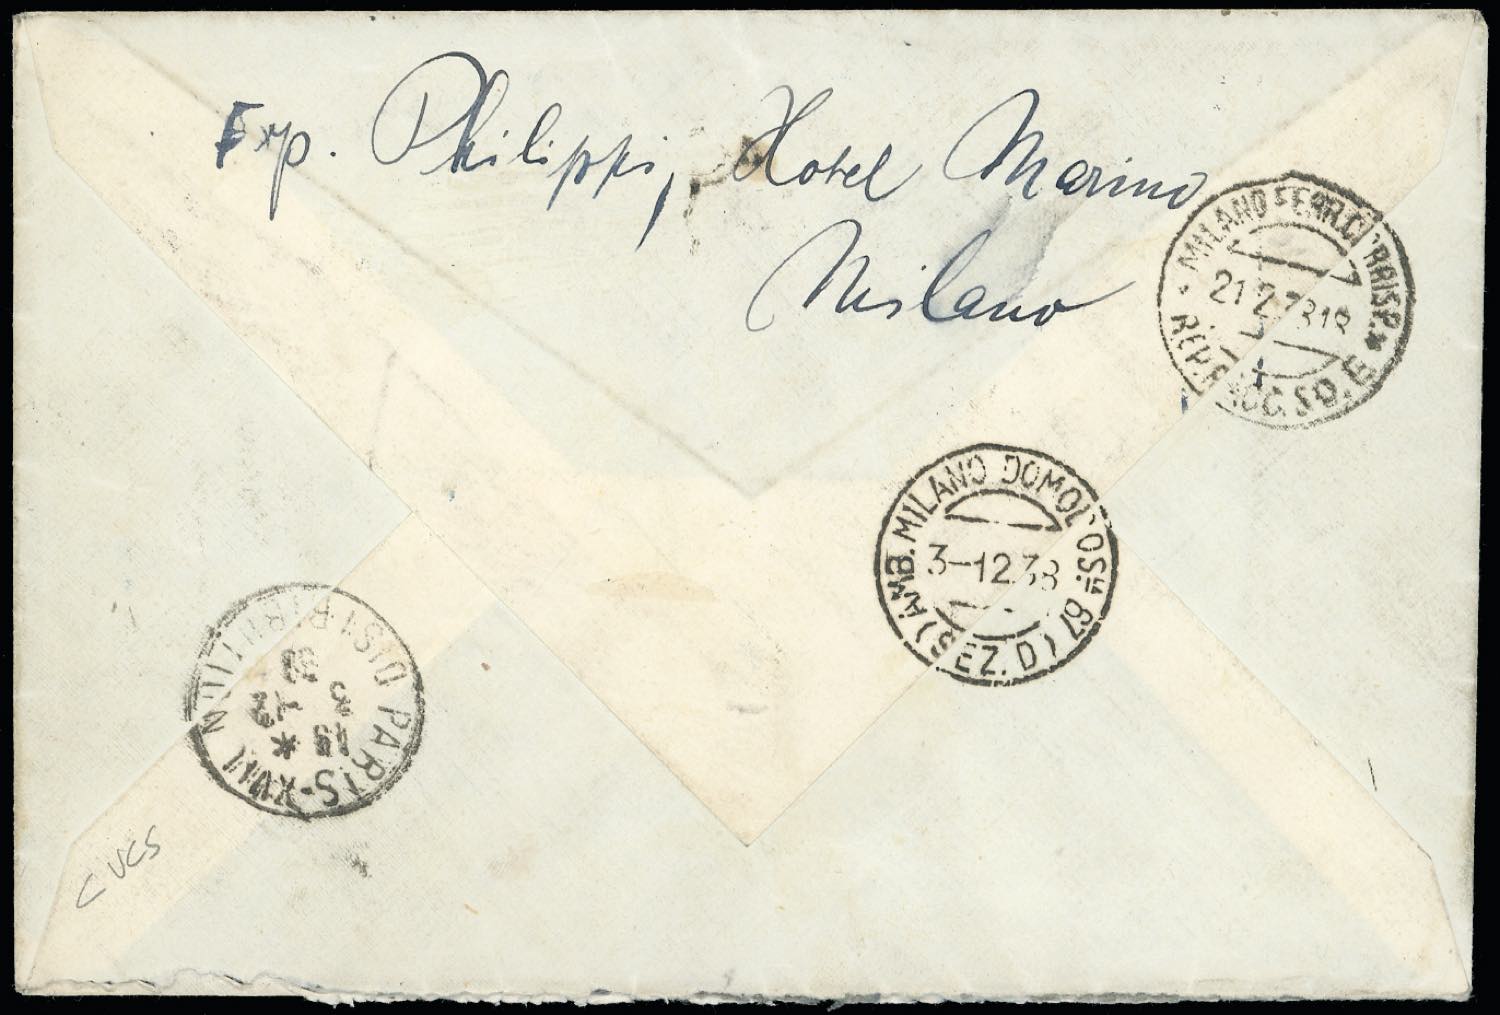 Exp. Philippi, Hotel Marino
Milano
MILANO FERR. CORRISP.
21 2 38 18
RACC. SO. E
AMB. MILANO DOMODOSLA 67 (SEZ. D)
3-12 38
PARIS-XVIII DISTRIBUTION
* 19
3 -12
38